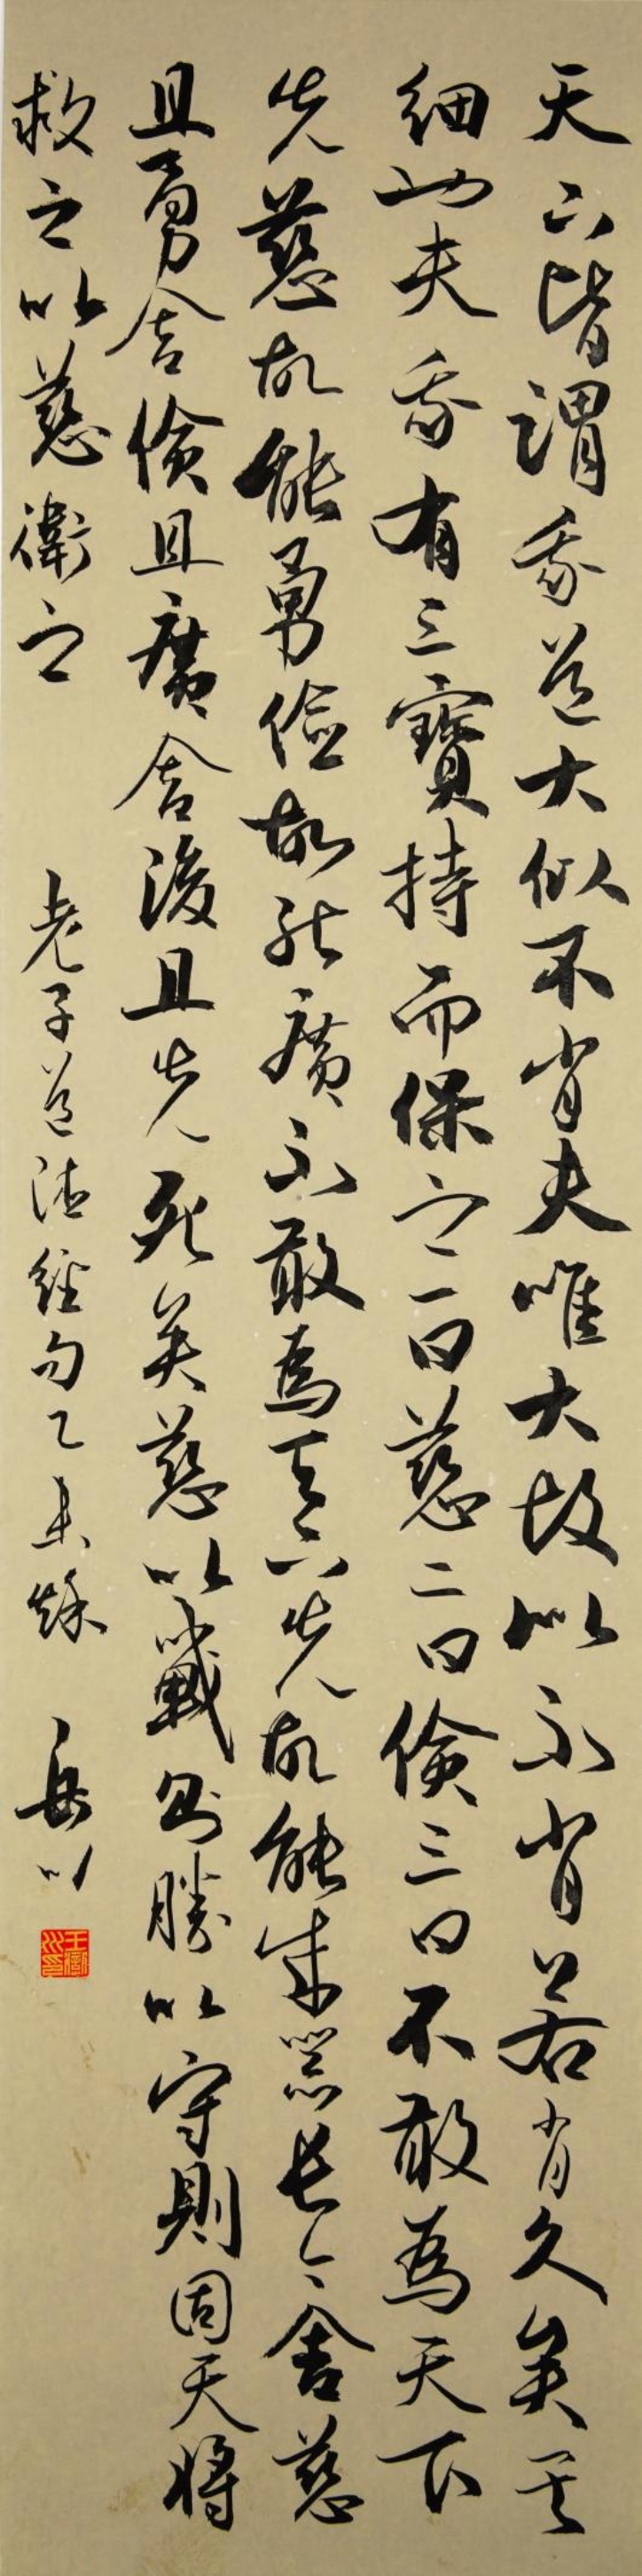 天下皆謂我道大似不肖夫唯大故似不肖若肖久矣其
細也夫我有三寶持而保之一曰慈二曰儉三曰不敢為天下
先慈故能勇儉故能廣不敢為天下先故能成器長今舍慈
且勇舍儉且廣舍後且先死矣慈以戰則勝以守則固天將
救之以慈衛之
老子道德經句乙未秋